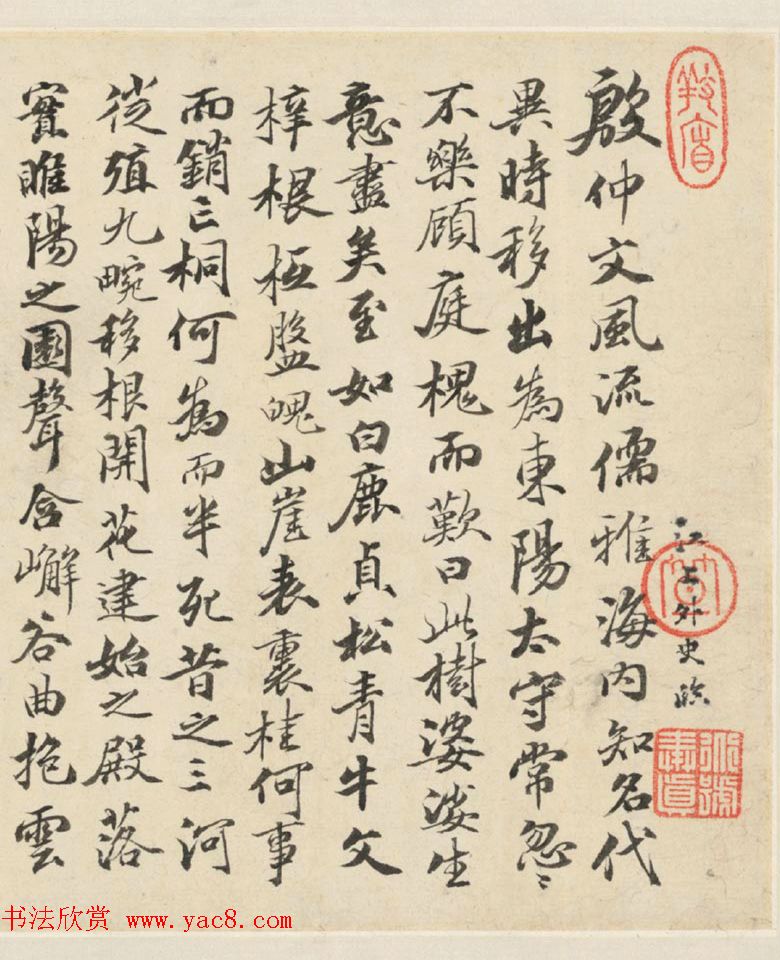 江上外史臨
殷仲文風流儒雅海内知名代
異時移出為東陽太守常忽〻
不樂顧庭槐而歎曰此樹婆娑生
意盡矣至如白鹿貞松青牛文
梓根柢盤魄山崖表裏桂何事
而銷亡桐何為而半死昔之三河
從殖九畹移根開花建始之殿落
實睢陽之園聲含嶰谷曲抱雲
书法欣赏 www.yac8.com